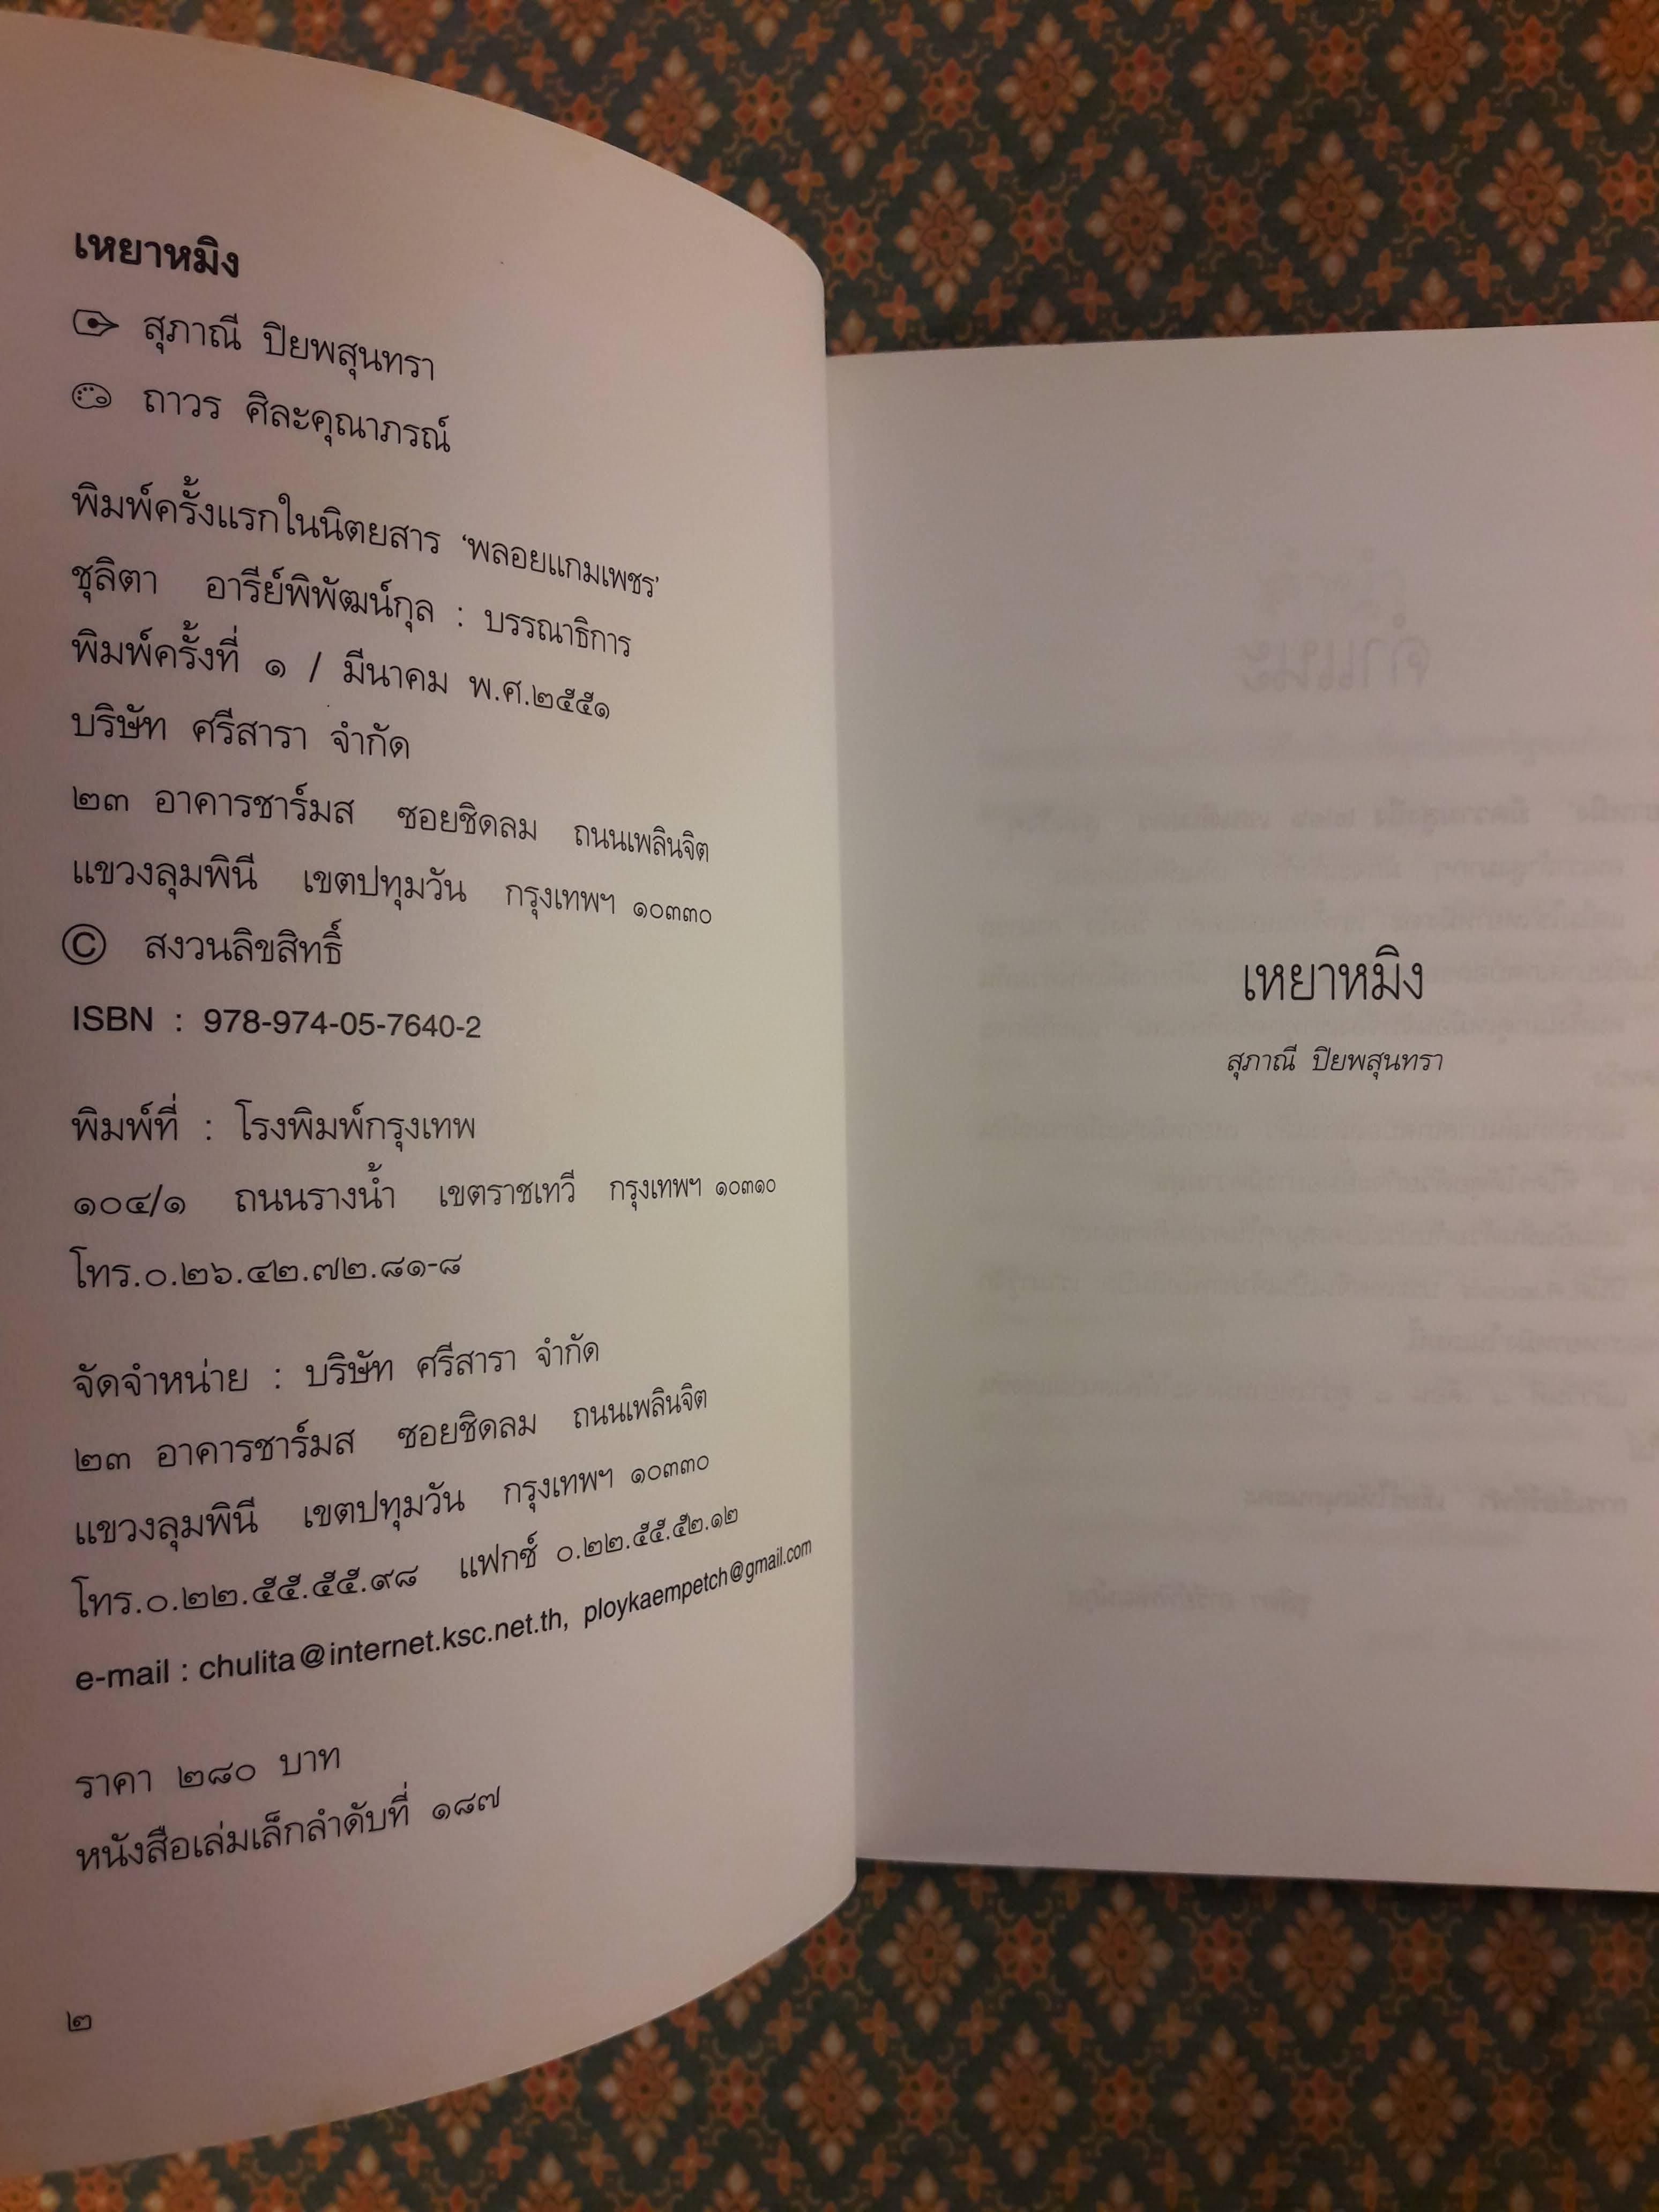 เหยาหมิง
สุภาณี ปิยพสุนทรา
ถาวร ศิละคุณาภรณ์
พิมพ์ครั้งแรกในนิตยสาร ‘พลอยแกมเพชร’
ชุลิตา อารีย์พิพัฒน์กุล : บรรณาธิการ
พิมพ์ครั้งที่ ๑ / มีนาคม พ.ศ.๒๕๕๑
บริษัท ศรีสารา จำกัด
๒๓ อาคารชาร์มส ซอยชิดลม ถนนเพลินจิต
แขวงลุมพินี เขตปทุมวัน กรุงเทพฯ ๑๐๓๓๐
© สงวนลิขสิทธิ์
ISBN : 978-974-05-7640-2
พิมพ์ที่ : โรงพิมพ์กรุงเทพ
๑๐๔/๑ ถนนรางน้ำ เขตราชเทวี กรุงเทพฯ ๑๐๓๑๐
โทร.๐.๒๖.๔๒.๗๒.๘๑-๘
จัดจำหน่าย : บริษัท ศรีสารา จำกัด
๒๓ อาคารชาร์มส ซอยชิดลม ถนนเพลินจิต
แขวงลุมพินี เขตปทุมวัน กรุงเทพฯ ๑๐๓๓๐
โทร.๐.๒๒.๕๕.๕๕.๙๘ แฟกซ์ ๐.๒๒.๕๕.๕๒.๑๒
e-mail : chulita@internet.ksc.net.th, ploykaempetch@gmail.com
ราคา ๒๘๐ บาท
หนังสือเล่มเล็กลำดับที่ ๑๘๗
๒
เหยาหมิง
สุภาณี ปิยพสุนทรา